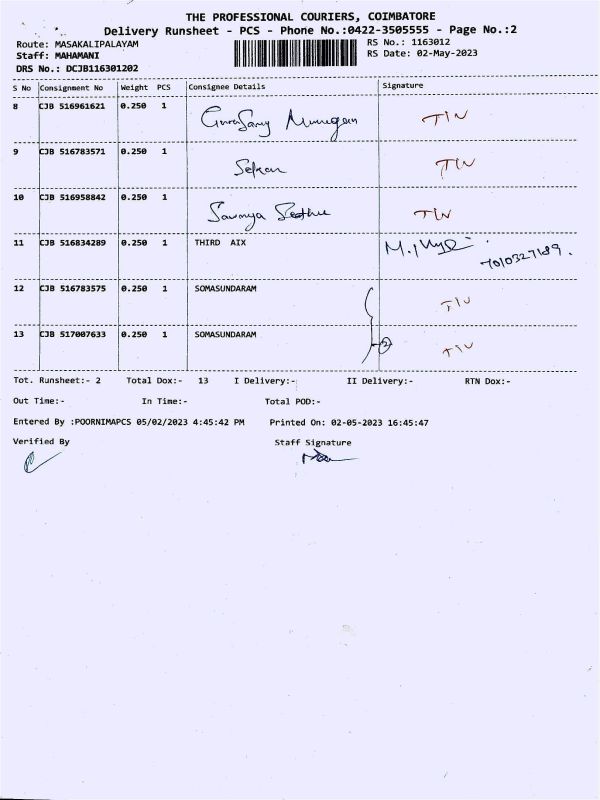 THE PROFESSIONAL COURIERS, COIMBATORE
Delivery Runsheet - PCS - Phone No.:0422-3505555 - Page No.:2
Route: MASAKALIPALAYAM
RS No.: 1163012
Staff: MAHAMANI
RS Date: 02-May-2023
DRS No.: DCJB116301202
S No Consignment No Weight PCS Consignee Details Signature
8 CJB 516961621 0.250 1 Gurusamy Murugan TIN
9 CJB 516783571 0.250 1 Sekar TIN
10 CJB 516958842 0.250 1 Sowmya TIN
11 CJB 516834289 0.250 1 THIRD AIX
7010327189.
12 CJB 516783575 0.250 1 SOMASUNDARAM TIN
13 CJB 517007633 0.250 1 SOMASUNDARAM 2 TIN
Tot. Runsheet:- 2 Total Dox:- 13 I Delivery:- II Delivery:- RTN Dox:-
Out Time:- In Time:- Total POD:-
Entered By :POORNIMAPCS 05/02/2023 4:45:42 PM Printed On: 02-05-2023 16:45:47
Verified By Staff Signature